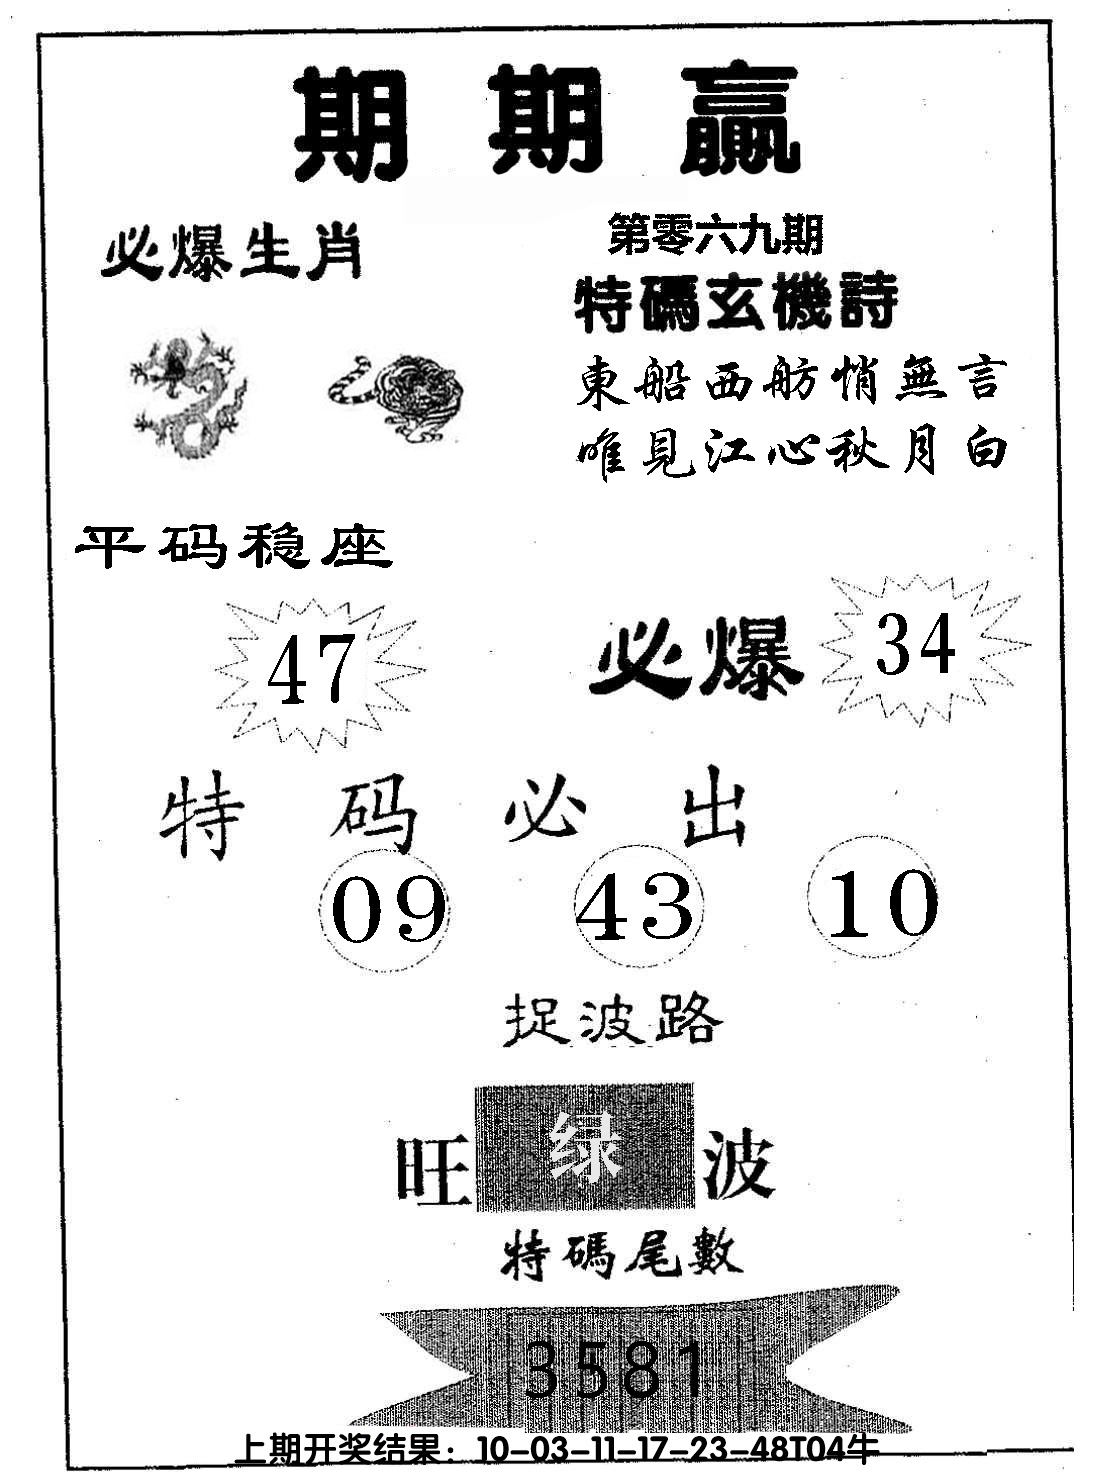 期期赢
必爆生肖
第零六九期
特碼玄機詩
東船西舫悄無言
唯見江心秋月白
平码稳座
47
必爆
34
特码必出
09 43 10
捉波路
旺 绿 波
特碼尾數
3581
上期开奖结果：10-03-11-17-23-48T04牛